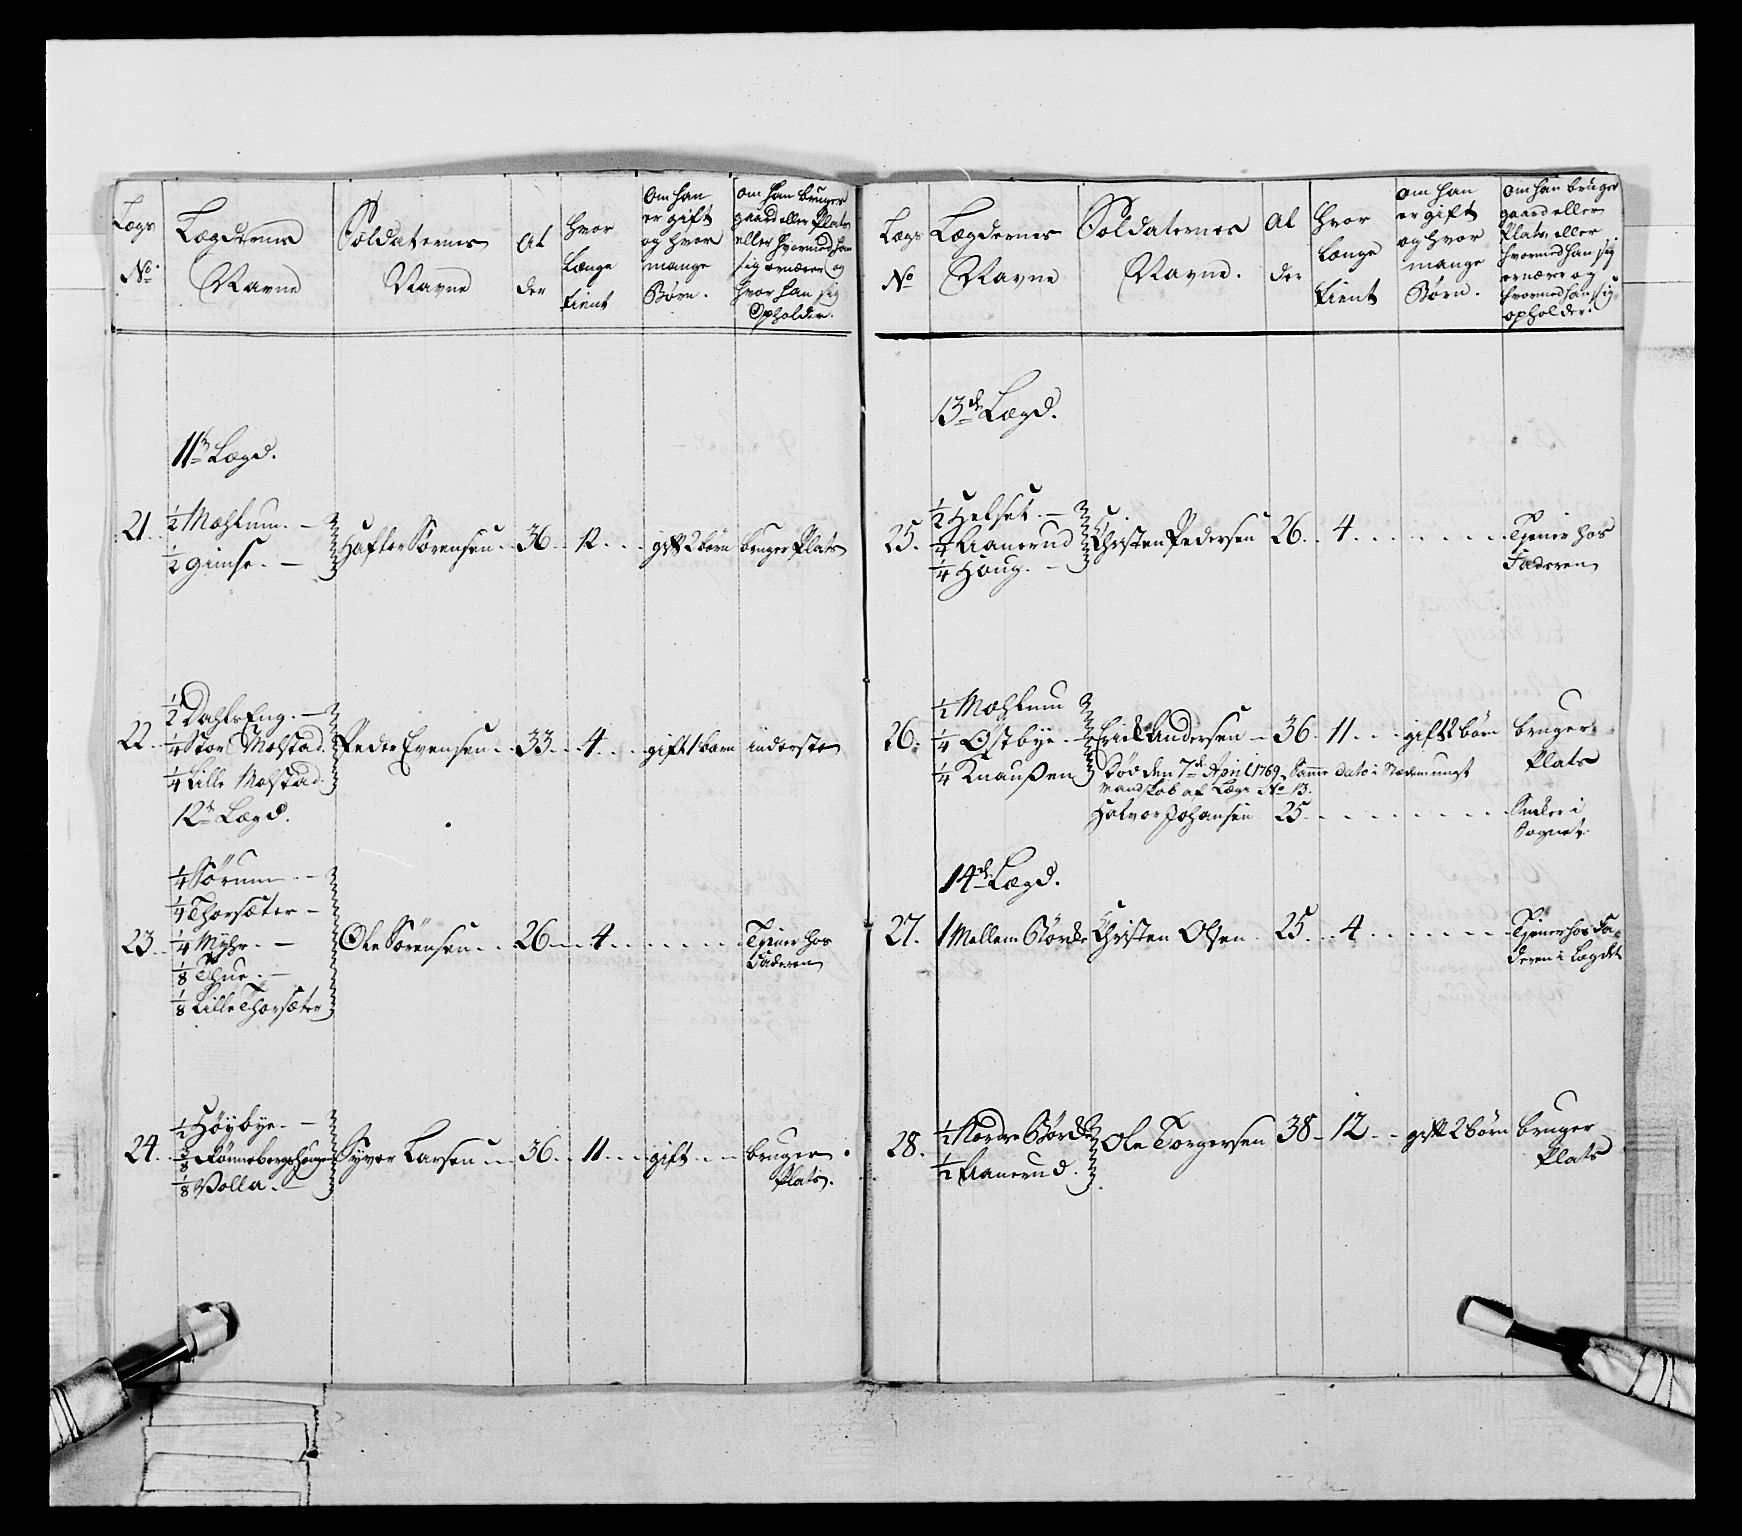 Lægs No
Lægdernes Navne
Soldaternes Navne
Alder
hvor længe tient
Om han er gift og hvor mange Børn.
om han bruger gaard eller Plats eller hvormed han sig ernærer og hvor han sig Opholder.
11te Lægd.
21. ½ Mæhlum. —
½ Gimse. —
Haftor Sørensen. 36. 12. gift 2 børn bruger Plats
22. ½ Dahls Eng. —
¼ Store Mælstad.
¼ Lille Mælstad.
Peder Evensen. 33. 4. gift 1 barn inderste
12te Lægd.
23. ¼ Sørum —
¼ Thorsæter —
¼ Myhr. —
⅛ Thue. —
⅛ Lille Thorsæter
Ole Sörensen. 26. 4. Tjener hos
Faderen
24. ½ Høybye. —
⅜ Rønnebergshougen
⅛ Volla. —
Syver Larsen 36. 11. gift bruger
Plats.
Lægs No
Lægdernes Navne
Soldaternes Navne.
Alder
hvor længe tient
om han er gift og hvor mange Børn.
om han bruger gaard eller Plats eller hvormed han sig ernærer og hvormed han sig opholder.
13de Lægd.
25. ½ Helset. —
¼ Aanerud
¼ Houg. —
Christen Pedersen 26. 4. Tjener hos
Faderen
26. ½ Mæhlum
¼ Østbye —
¼ Knaußen
Erick Andersen — 36. 11. gift 2 børn bruger
Plats
Död den 7de April 1769. Samme dato i
Mandskab af Lægs No 13.
Halvor Johansen 25. i
Sognet.
14de Lægd.
27. 1 Mellem Börde Christen Olsen 25. 4. Tjener hos Fa-
deren i Lægdet
28. ½ Nordre Börde
½ Aanerud.
Ole Torgersen 38 — 12. gift 2 børn bruger
Plats